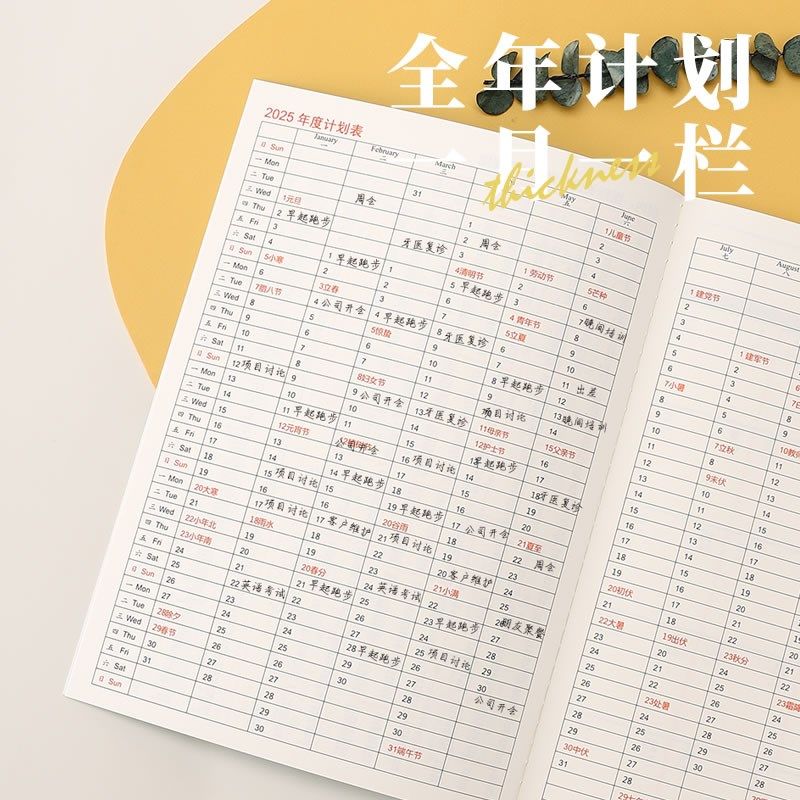 全年计划
一月一栏
thickness
2025 年度计划表
January 一
February 二
March 三
May 五
June 六
July 七
August 八
日 Sun
一 Mon
二 Tue
三 Wed
四 Thu
五 Fri
六 Sat
日 Sun
一 Mon
二 Tue
三 Wed
四 Thu
五 Fri
六 Sat
日 Sun
一 Mon
二 Tue
三 Wed
四 Thu
五 Fri
六 Sat
日 Sun
一 Mon
二 Tue
三 Wed
四 Thu
五 Fri
六 Sat
日 Sun
一 Mon
二 Tue
三 Wed
四 Thu
五 Fri
六 Sat
日 Sun
1元旦
2 早起跑步
3
4
5小寒
6
7腊八节
8
9
10
11
12 项目讨论
13
14
15
16
17
18
19
20大寒
21
22小年北
23小年南
24
25
26
27
28除夕
29春节
30
31
周会
1 早起跑步
2
3立春
4 公司开会
5
6
7
8
9
10
11 早起跑步
12元宵节
13
14
15 项目讨论
16
17 项目讨论
18雨水
19
20
21
22 英语考试
23
24
25
26
27
28
31
牙医复诊
4 早起跑步
5惊蛰
6
7
8妇女节
9 公司开会
公司开会
14 早起跑步
15
16
17 客户维护
18
19
20春分
21 早起跑步
22
23
24
25
26
27
28
29
30
1
2 周会
3
4清明节
5 早起跑步
6
7
8 牙医复诊
9
10
11
12
13 牙医复诊
14
15
16 项目讨论
17
18
19 早起跑步
20谷雨
21 项目讨论
22
23
24 英语考试
25
26
27
28 早起跑步
29
30
1 劳动节
2
3
4 青年节
5立夏
6
7
8 早起跑步
9
项目讨论
11母亲节
12护士节
早起跑步
14
15
16
17 公司开会
18
19
20 客户维护
21小满
22
23 早起跑步
24
25 项目讨论
26
27
28
29
30
31端午节
1儿童节
2
3
4
5芒种
6
7 晚间培训
8
9
10
11 出差
12
13 晚间培训
14
15父亲节
16
17
18 牙医复诊
19
20
21夏至
22 周会
23
24
25
朋友聚餐
27
28
29
30
公司开会
1 建党节
2
3
4
5
6
7小暑
8
9
10
11
12
13
14
15
16
17
18
19
20初伏
21
22大暑
23
24
25
26
27
28
29
30中伏
31
1 建军节
2
3
4
5
6
7立秋
8
9末伏
10
11
12
13
14
15
16
17
18
19出伏
20
21
22
23处暑
24
25
26
27
28
23秋分